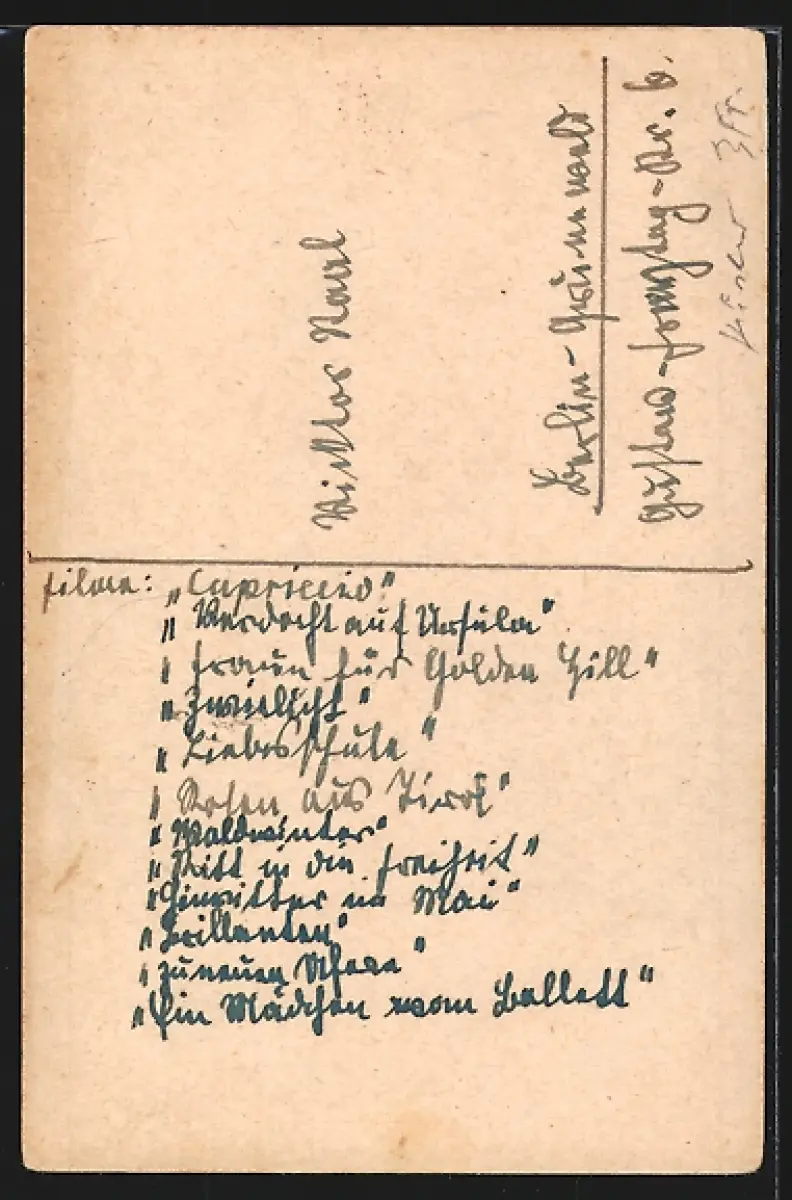 Viktor Staal
Berlin-Grunewald
Gustav-Freytag-Str. 6.
Filme: „Capriccio"
„Verdacht auf Ursula"
„Frauen für Golden Hill"
„Zwielicht"
„Liebesschule"
„Rosen aus Tirol"
„Waldwinter"
„Ritt in die Freiheit"
„Gewitter im Mai"
„Brillanten"
„Zu neuen Ufern"
„Ein Mädchen vom Ballett"